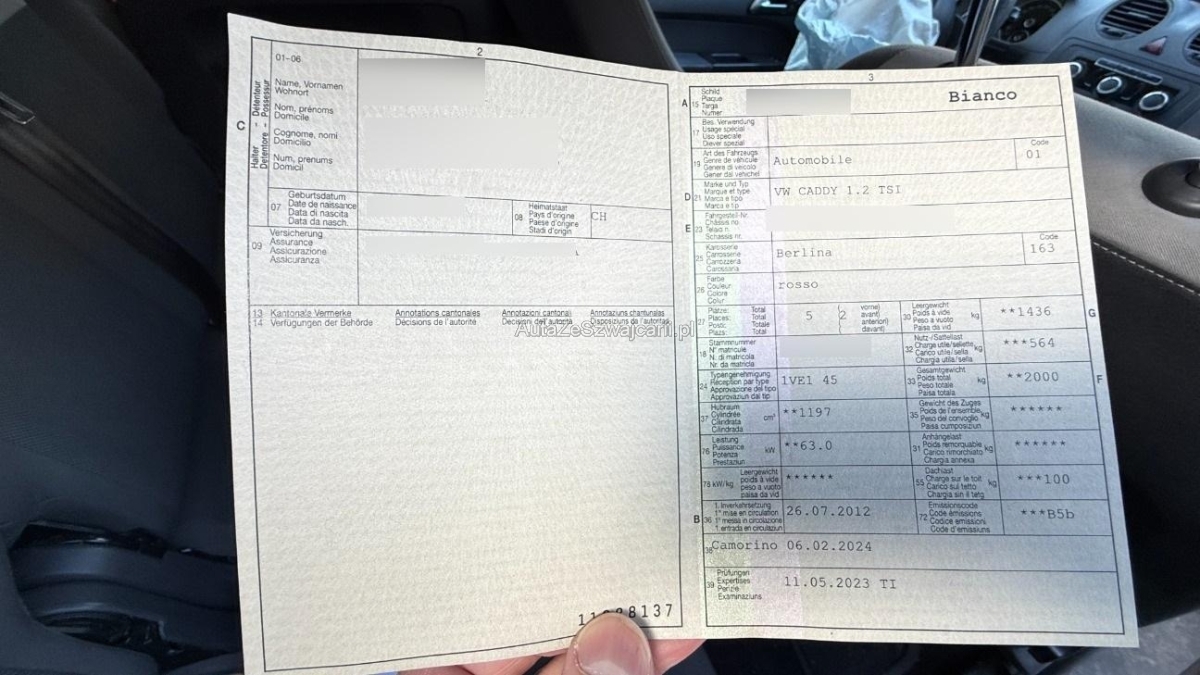 2
C
Halter - Detenteur
Detentore - Possessur
01-06
Name, Vornamen
Wohnort
Nom, prénoms
Domicile
Cognome, nomi
Domicilio
Num, prenums
Domicil
07
Geburtsdatum
Date de naissance
Data di nascita
Data da nasch.
08
Heimatstaat
Pays d'origine
Paese d'origine
Stadi d'origin
CH
09
Versicherung
Assurance
Assicurazione
Assicuranza
13 Kantonale Vermerke Annotations cantonales Annotazioni cantonali Annotaziuns chantunalas
14 Verfügungen der Behörde Décisions de l'autorité Decisioni dell'autorità Disposiziuns da l'autoritad
AutaZeSzwajcarii.pl
8137
3
A
15
Schild
Plaque
Targa
Numer
Bianco
17
Bes. Verwendung
Usage spécial
Uso speciale
Diever spezial
19
Art des Fahrzeugs
Genre de véhicule
Genere di veicolo
Gener dal vehichel
Automobile
Code
01
D
21
Marke und Typ
Marque et type
Marca e tipo
Marca e tip
VW CADDY 1.2 TSI
E
23
Fahrgestell-Nr.
Châssis no.
Telaio n.
Schassis nr.
25
Karosserie
Carrosserie
Carrozzeria
Carossaria
Berlina
Code
163
26
Farbe
Couleur
Colore
Colur
rosso
27
Plätze: Total
Places: Total
Posti: Totale
Plazs: Total
5
(2
vorne)
avant)
anteriori)
davant)
30
Leergewicht
Poids à vide
Peso a vuoto
Paisa da vid
kg
**1436
G
18
Stammnummer
N° matricule
N. di matricola
Nr. da matricla
32
Nutz-/Sattellast
Charge utile/sellette
Carico utile/sella
Chargia utila/sella
kg
***564
24
Typengenehmigung
Réception par type
Approvazione del tipo
Approvaziun dal tip
1VE1 45
33
Gesamtgewicht
Poids total
Peso totale
Paisa totala
kg
**2000
F
37
Hubraum
Cylindrée
Cilindrata
Cilindrada
cm³
**1197
35
Gewicht des Zuges
Poids de l'ensemble
Peso del convoglio
Paisa cumposiziun
kg
******
76
Leistung
Puissance
Potenza
Prestaziun
kW
**63.0
31
Anhängelast
Poids remorquable
Carico rimorchiato
Chargia annexa
kg
******
78 kW/kg
Leergewicht
poids à vide
peso a vuoto
paisa da vid
******
55
Dachlast
Charge sur le toit
Carico sul tetto
Chargia sin il tetg
kg
***100
B
36
1. Inverkehrsetzung
1re mise en circulation
1a messa in circolazione
1. entrada en circulaziun
26.07.2012
72
Emissionscode
Code émissions
Codice emissioni
Code d'emissiuns
***B5b
38
Camorino 06.02.2024
39
Prüfungen
Expertises
Perizie
Examinaziuns
11.05.2023 TI